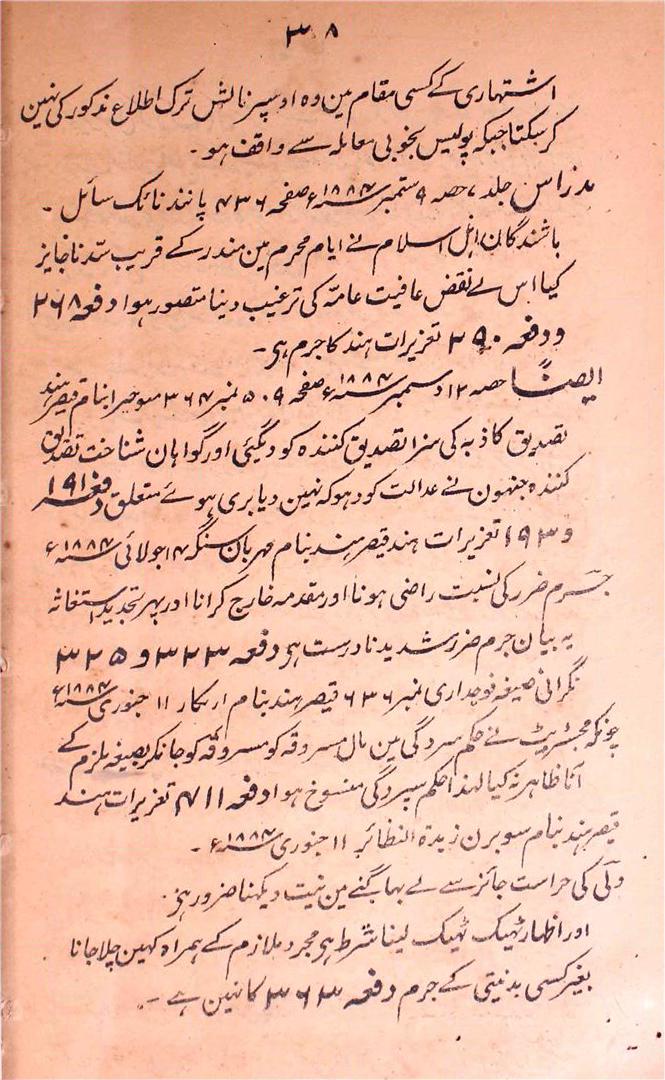 ۳۰۸
اشتہاری کے کسی مقام مین وہ اوسپر نالش ترک اطلاع مذکور کی نہین
کر سکتا جبکہ پولیس بخوبی معاملہ سے واقف ہو۔
مدراس جلد ۷ حصہ ۹ ستمبر سنہ ۱۸۸۴ء صفحہ ۴۳۶ پانند نانک سائل۔
باشندگان اہل اسلام نے ایام محرم مین مندر کے قریب سدّ ناجایز
کیا اس لے نقض عافیت عامہ کی ترغیب دینا متصور ہوا دفعہ ۲۶۸
و دفعہ ۲۹۰ تعزیرات ہند کا جرم ہی۔
ایضاً حصہ ۱۲ دسمبر سنہ ۱۸۸۴ء صفحہ ۵۰۹ نمبر ۳۶۴ بنام قیصر ہند
تصدیق کاذبہ کی سزا تصدیق کنندہ کو دیگئی اور گواہان شناخت تصدیق
کنندہ جنہون نے عدالت کو دہوکہ نہین دیا بری ہوئے متعلق دفعہ ۱۹۱
و ۱۹۳ تعزیرات ہند قیصر ہند بنام مہربان سنگہ ۱۴ جولائی سنہ ۱۸۸۴ء
جرم ضرر کی نسبت راضی ہونا اور مقدمہ خارج کرانا اور پہر تجدید استغاثہ
یہ بیان جرم ضرر شدید نادرست ہی دفعہ ۳۲۳ و ۳۲۵
نگرانی صیغہ فوجداری نمبر ۶۳۶ قیصر ہند بنام ۱۱ جنوری سنہ ۱۸۸۴ء
چونکہ مجسٹریٹ نے حکم سپردگی مین مال مسروقہ کو مسروقہ کو جانکر بصیغہ ملزم کے
آنا ظاہر نہ کیا لہذا حکم سپردگی منسوخ ہوا دفعہ ۴۱۱ تعزیرات ہند
قیصر ہند بنام سوبرن زبدۃ النظائر ۱۱ جنوری سنہ ۱۸۸۴ء۔
ولی کی حراست جائز سے لے بہاگنے مین نیت دیکہنا ضرور ہی۔
اور اظہار ٹہیک ٹہیک لینا شرط ہی مجرد ملازم کے ہمراہ کہین چلا جانا
بغیر کسی بدنیتی کے جرم دفعہ ۳۶۳ کا نہین ہے۔